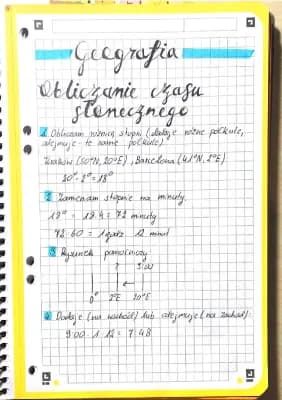 Geografia
Obliczanie czasu
słonecznego
1. Obliczam różnicę stopni (dodaję różne półkule,
odejmuję te same półkule)
Kraków (50°N, 20°E), Barcelona (41°N, 2°E)
20°-2°=18°
2. Zamieniam stopnie na minuty.
18° = 18·4 = 72 minuty
72:60 = 1 godz. 12 minut
3. Rysunek pomocniczy
? 9:00
0° 2°E 20°E
4. Dodaję (na wschód) lub odejmuję (na zachód):
9:00-1:12= 7:48